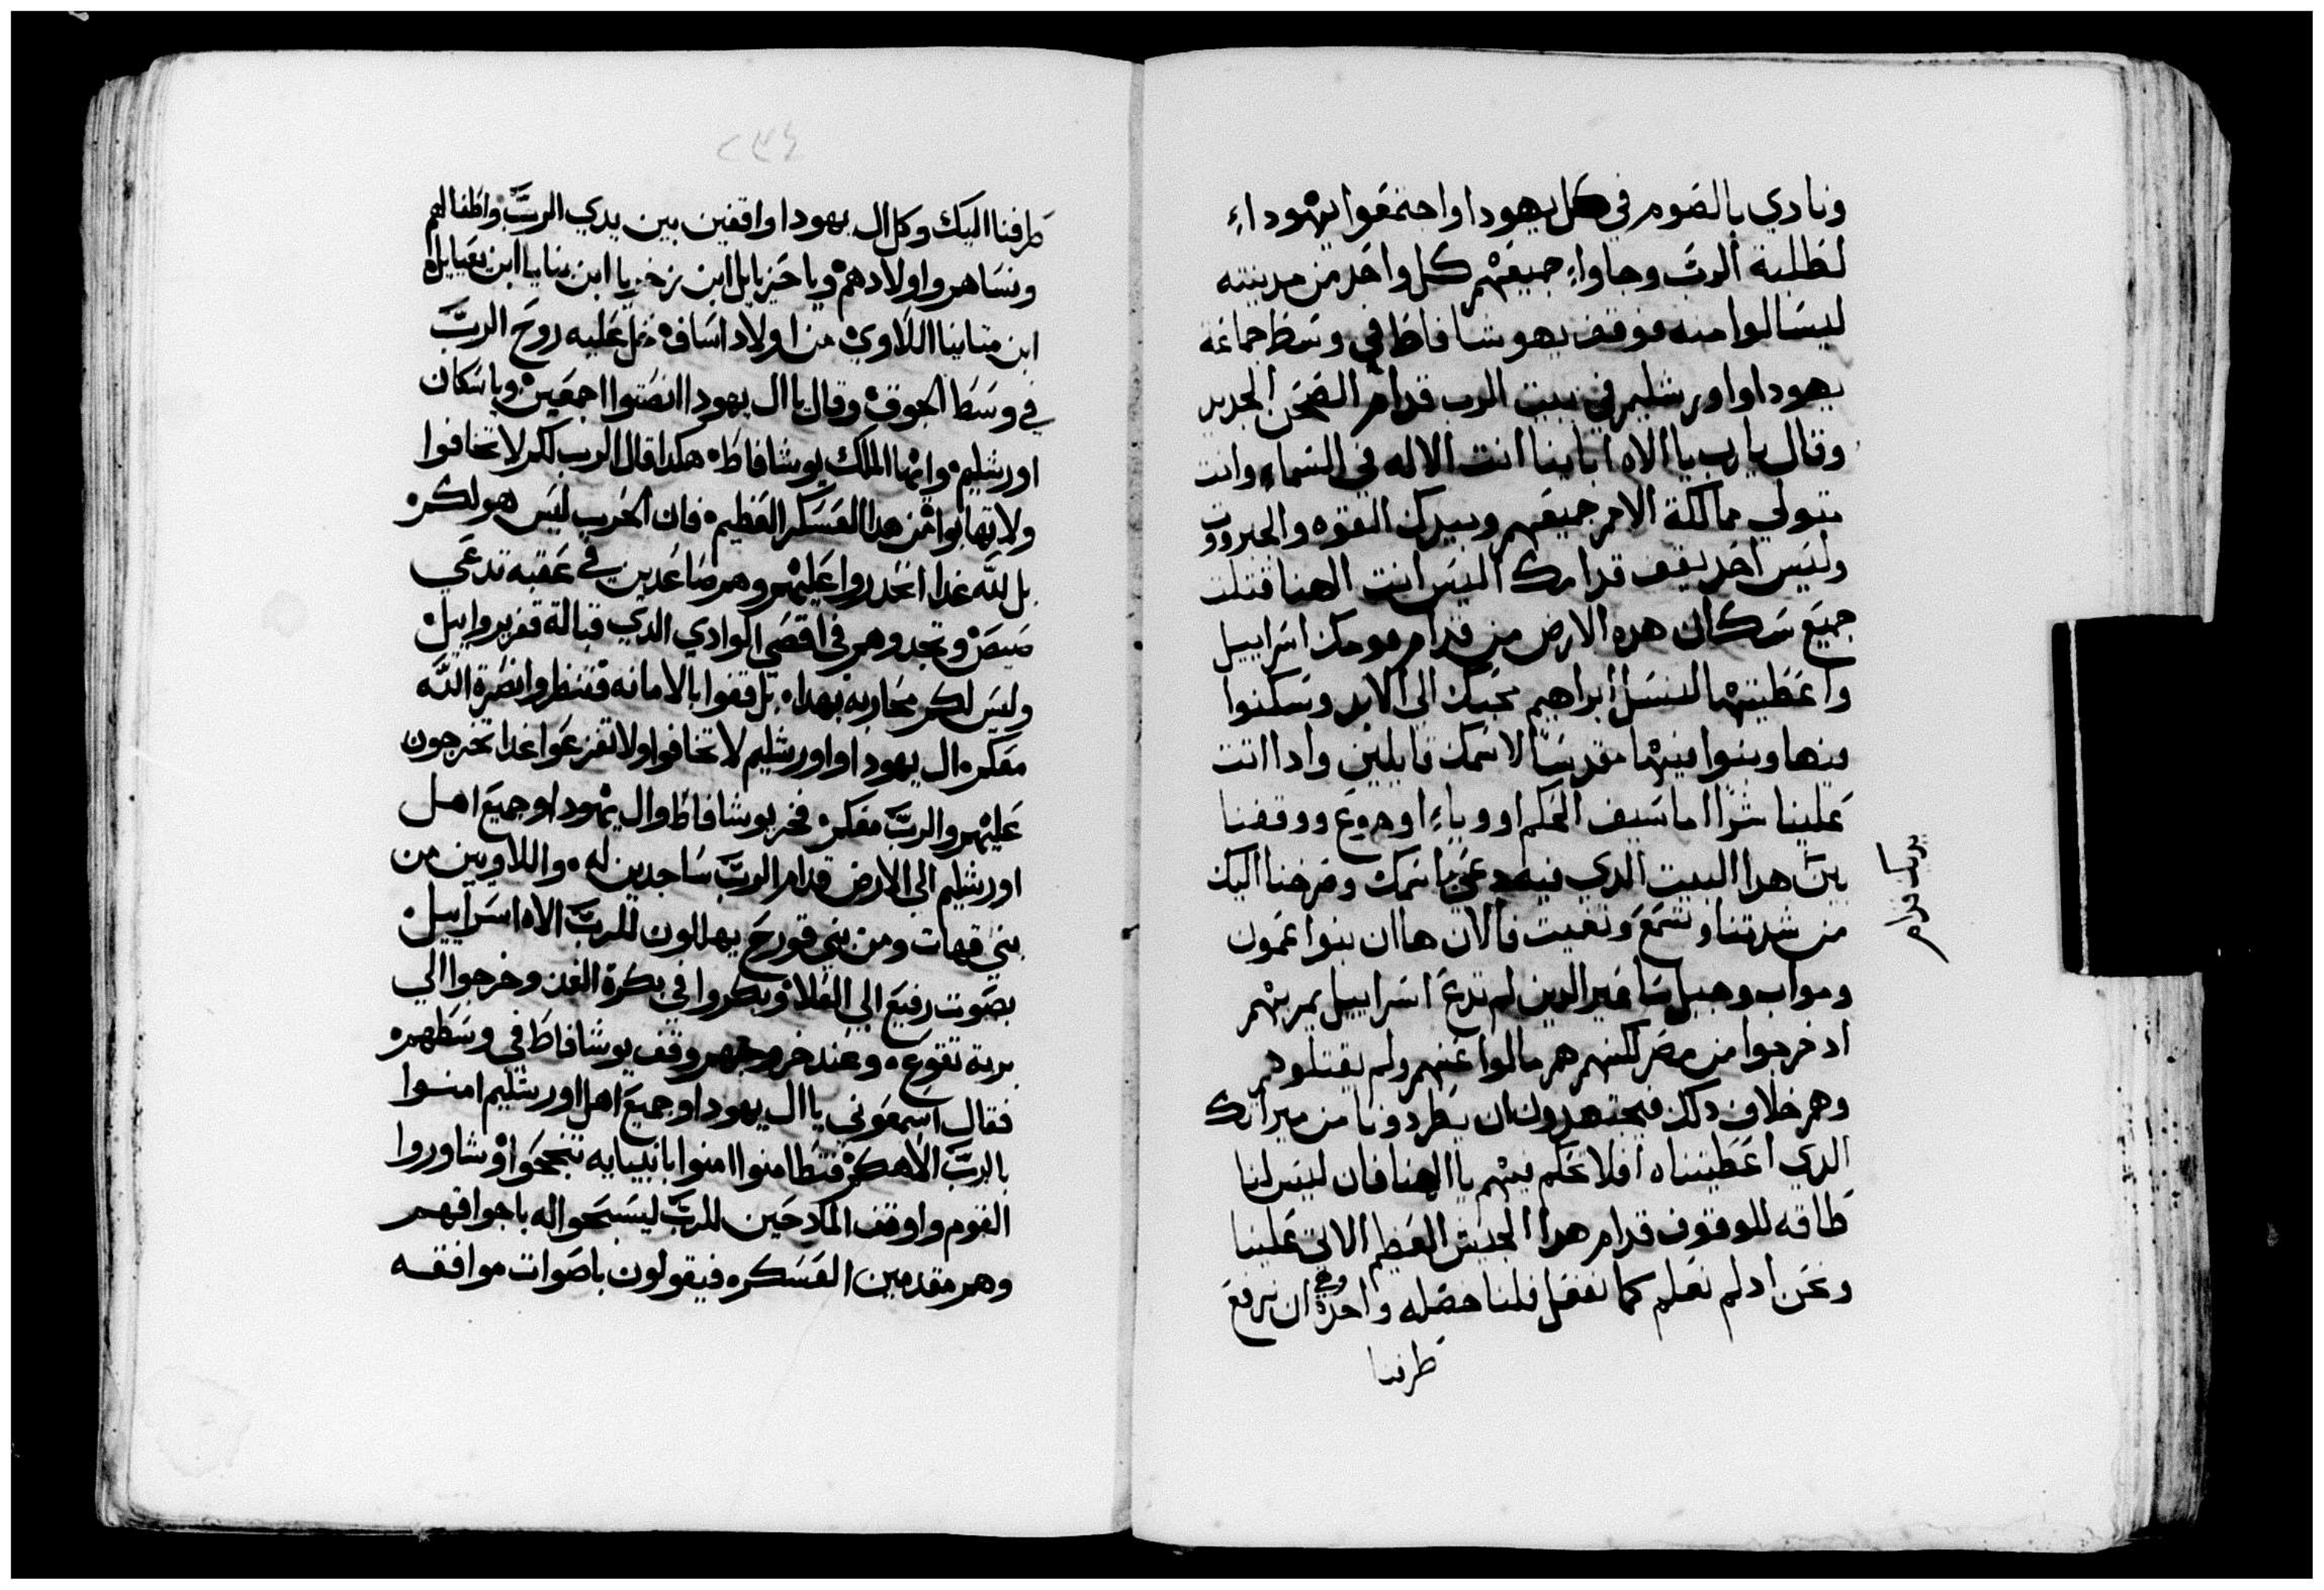 ونادي بالصوم في كل يهودا واجتمعوا يهوداء
لطلبة الرب وجاواء جميعهم كل واحد من مدينته
ليسالوا منه فوقف يهوشافاط في وسط جماعة
يهودا واورشليم في بيت الرب قدام الصحن الجديد
وقال يا رب يا الاه ابايينا انت الاله في السماء وانت
تتولي مملكة الامم جميعهم وبيدك القوه والجبروت
وليس احد يقف قدامك اليس انت الهنا قتلت
جميع سكان هده الارض من قدام قومك اسراييل
واعطيتها لنسل ابراهيم محبك الي الابد وسكنوا
فيها وبنوا فيها مقدسا لاسمك قايلين وادا اتت
علينا شرا اما سيف الحكم او وباء او جوع ووقفنا
بين هدا البيت الدي فيه دعي باسمك وصرخنا اليك
من شدتنا وتسمع وتغيت فالان ها ان بنوا عمون
ومواب وجبل ساعير الدين لم تدع اسراييل يمر بهم
اد خرجوا من مصر لكنهم هم مالوا عنهم ولم يقتلوهم
وهم خلاف دلك فيجتهدون ان يطردونا من ميراتك
الدي اعطيتناه افلا تحكم فيهم يا الهنا فان ليس لنا
طاقه للوقوف قدام هدا الجيش العظيم الاتي علينا
ونحن اد لم نعلم كما نفعل فلنا خصله واحدة وهي ان نرفع
طرفنا
يديك قدام
٢٣٤
طرفنا اليك وكل ال يهودا واقفين بين يدي الرب واطفالهم
ونساهم واولادهم وياحزيايل ابن زخريا ابن بنايا ابن يعيايل
ابن متانيا اللاوي من اولاد اساف حل عليه روح الرب
في وسط الجوق وقال يا ال يهودا انصتوا اجمعين ويا سكان
اورشليم وايها الملك يوشافاط هكدا قال الرب لكم لا تخافوا
ولا تهابوا من هدا العسكر العظيم فان الحرب ليس هو لكم
بل لله غدا انحدروا عليهم وهم صاعدين في عقبه تدعي
صيص وتجدوهم في اقصي الوادي الدي قبالة قفر يروايل
وليس لكم محاربه بهدا بل قفوا بالامانه فتنظروا نصرة الله
معكم ال يهودا واورشليم لا تخافوا ولا تفزعوا غدا تخرجون
عليهم والرب معكم فخر يوشافاط وال يهودا وجميع اهل
اورشليم الي الارض قدام الرب ساجدين له واللاويين من
بني قهات ومن بني قورح يهللون للرب الاه اسراييل
بصوت رفيع الي العلا وبكروا في بكرة الغد وخرجوا الي
برية تقوع وعند خروجهم وقف يوشافاط في وسطهم
فقال اسمعوني يا ال يهودا وجميع اهل اورشليم امنوا
بالرب الاهكم فتطامنوا امنوا بانبيايه تنجحوا وشاوروا
القوم واوقف المادحين للرب ليسبحوا له باجواقهم
وهم مقدمين العسكر فيقولون باصوات موافقه